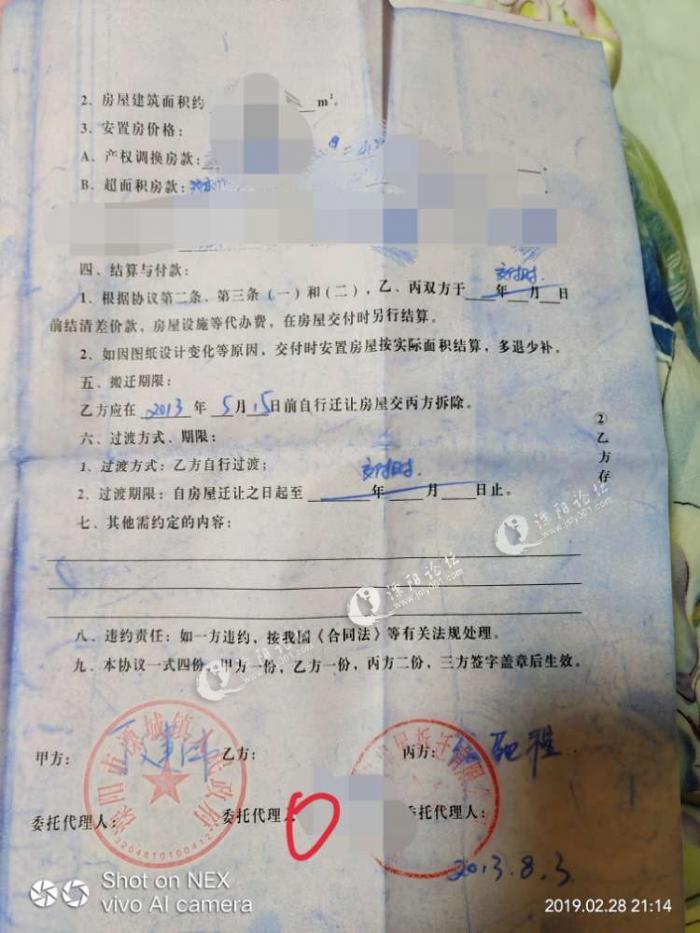 2、房屋建筑面积约 m²。
3、安置房价格：
A、产权调换房款：
B、超面积房款：
四、结算与付款：
1、根据协议第二条、第三条（一）和（二），乙、丙双方于 交付时 年 月 日
前结清差价款，房屋设施等代办费，在房屋交付时另行结算。
2、如因图纸设计变化等原因，交付时安置房屋按实际面积结算，多退少补。
五、搬迁期限：
乙方应在 2013 年 5 月 15 日前自行迁让房屋交丙方拆除。
六、过渡方式、期限：
1、过渡方式：乙方自行过渡；
2、过渡期限：自房屋迁让之日起至 交付时 年 月 日止。
七、其他需约定的内容：
②乙方存
溧阳论坛
www.jsly001.com
溧阳论坛
www.jsly001.com
八、违约责任：如一方违约，按我国《合同法》等有关法规处理。
九、本协议一式四份，甲方一份，乙方一份，丙方二份，三方签字盖章后生效。
溧阳论坛
www.jsly001.com
甲方： 乙方： 丙方：
溧阳市溧城镇人民政府
委托代理人： 委托代理人 委托代理人：
2013.8.3
Shot on NEX
vivo AI camera
2019.02.28 21:14